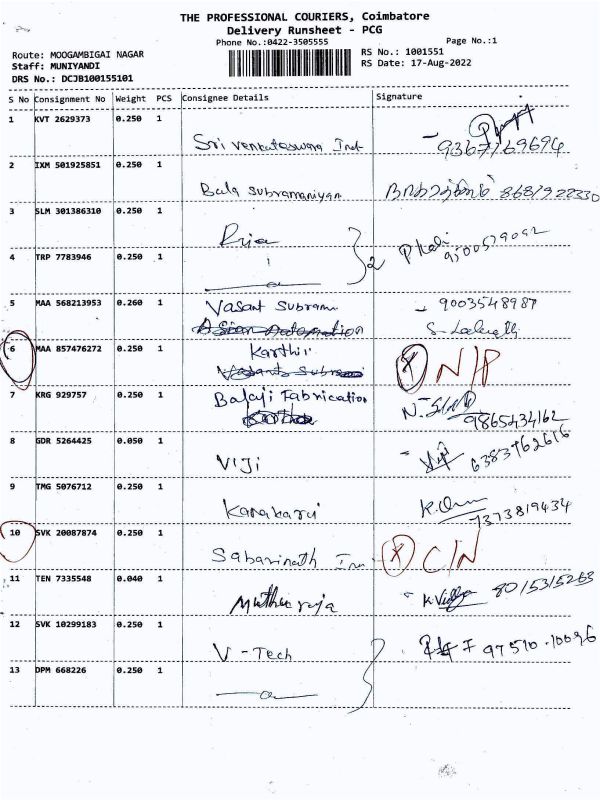 THE PROFESSIONAL COURIERS, Coimbatore
Delivery Runsheet - PCG
Phone No.:0422-3505555
Page No.:1
Route: MOOGAMBIGAI NAGAR
Staff: MUNIYANDI
DRS No.: DCJB100155101
RS No.: 1001551
RS Date: 17-Aug-2022
S No Consignment No Weight PCS Consignee Details Signature
1 KVT 2629373 0.250 1
Sri Venkateswara Ind 9367169694
2 IXM 501925851 0.250 1
Bala Subramaniyan 8681922330
3 SLM 301386310 0.250 1
2
4 TRP 7783946 0.250 1
5 MAA 568213953 0.260 1
Vasant Subram 9003548987
6 MAA 857476272 0.250 1
Karthi N/P
7 KRG 929757 0.250 1
Balaji Fabrication 9865434162
8 GDR 5264425 0.050 1
VIJI 6383962616
9 TMG 5076712 0.250 1
7373819434
10 SVK 20087874 0.250 1
Sabarinath C/N
11 TEN 7335548 0.040 1
Muthu raja K. Vidhya 8015315263
12 SVK 10299183 0.250 1
V-Tech 97510-10096
13 DPM 668226 0.250 1